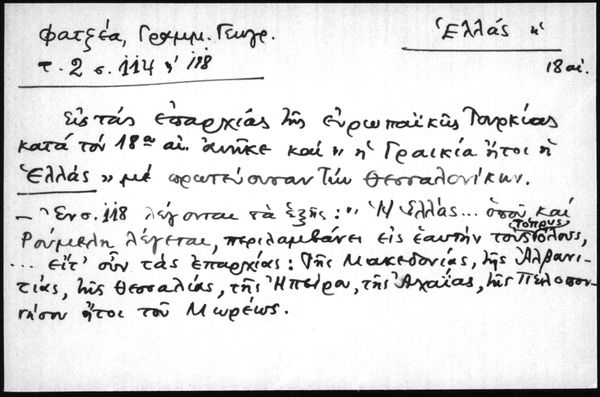 Φατζέα, Γραμμ. Γεωγρ.
τ. 2 σ. 114 κ' 118
Ἑλλάς κ'
18 αἰ.
Εἰς τὰς ἐπαρχίας τῆς εὐρωπαϊκῆς Τουρκίας
κατὰ τὸν 18ον αἰ. ἀνῆκε καὶ "ἡ Γραικία ἤτοι ἡ
Ἑλλάς" μὲ πρωτεύουσαν τὴν Θεσσαλονίκην.
– Ἐν σ. 118 λέγονται τὰ ἑξῆς: "Ἡ Ἑλλάς... ὁποῦ καὶ
Ρούμελη λέγεται, περιλαμβάνει εἰς ἑαυτὴν τοὺς
... εἴτ' οὖν τὰς ἐπαρχίας: τῆς Μακεδονίας, τῆς Ἀλβανι-
τίας, τῆς Θεσσαλίας, τῆς Ἠπείρου, τῆς Ἀχαΐας, τῆς Πελοπον-
νήσου ἤτοι τοῦ Μωρέως.